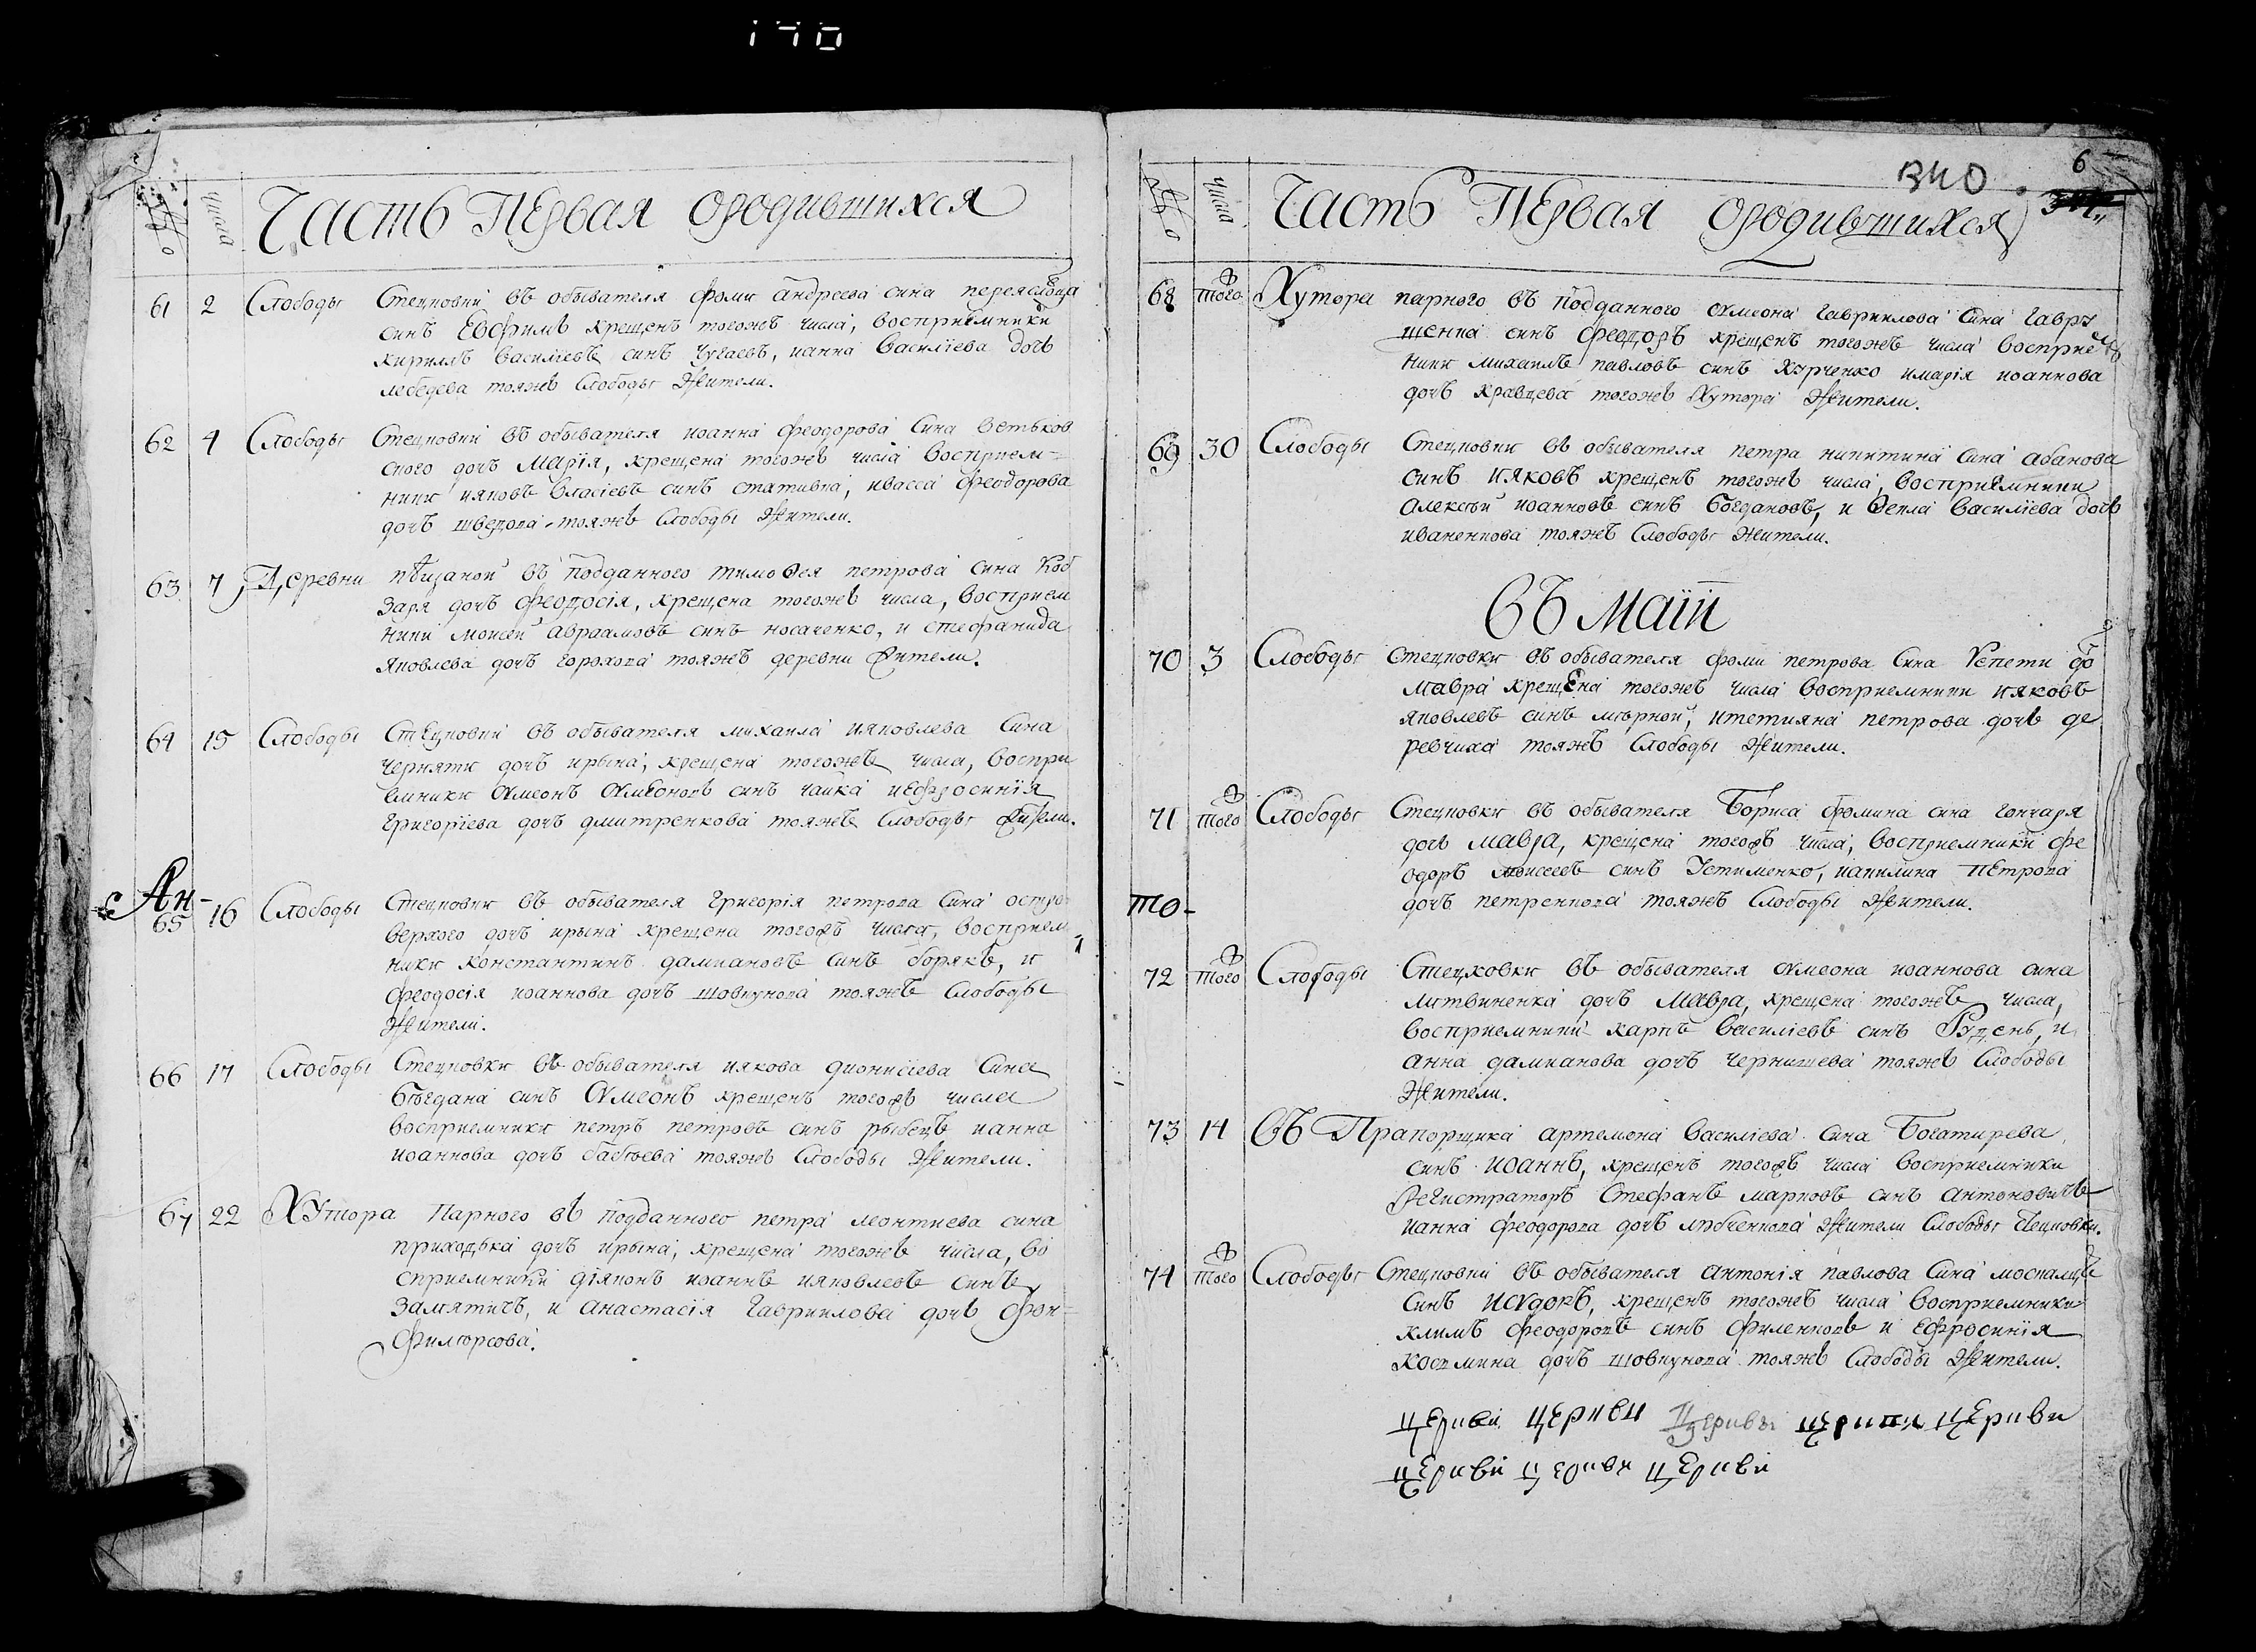 170
№ числа Часть Первая Ородившихся
61 2 Слободы Стецковки въ обывателя фоми андреева сина переяслоца
синъ Евфимъ крещенъ тогожъ числа, восприемники
кирилъ василіевъ синъ Чугаевъ, ианна василіева дочь
лебедева тояжъ Слободы Жители.
62 4 Слободы Стецковки въ обывателя иоанна феодорова Сина ветьков
ского дочъ Марія, крещена тогожъ числа восприем=
ники ияковъ власіевъ синъ стативка, ивасса феодорова
дочъ шведова тояжъ Слободы Жители.
63 7 Деревни пѣщаной въ подданного тимоѳея петрова сина Коб
заря дочъ Феодосія, крещена тогожъ числа, восприем
ники моисей авраамовъ синъ носаченко, и стефанида
яковлева дочъ горохова тояжъ деревни Жители.
64 15 Слободы Стецковки въ обывателя михаила ияковлева Сина
черняти дочъ ирына, крещена тогожъ числа, воспри
емники сѵмеонъ сѵмеоновъ синъ чайка иефросинія
григоріева дочъ дмитренкова тояжъ Слободы Жители.
Ан-
65 16 Слободы Стецковки въ обывателя григорія петрова Сина остро
верхого дочъ ирына крещена тогожъ числа, восприем
ники константинъ даміановъ синъ борякъ, и
феодосія иоаннова дочъ шовкунова тояжъ Слободы
Жители.
66 17 Слободы Стецковки въ обывателя иякова дионисіева Сина
богдана синъ Сѵмеонъ крещенъ тогожъ числа
восприемники петръ петровъ синъ рыбецъ ианна
иоаннова дочъ бабѣева тояжъ Слободы Жители.
67 22 Хутора Парного въ подданного петра леонтиева сина
приходька дочъ ирына, крещена тогожъ числа, во
сприемники діяконъ иоаннъ ияковлевъ синъ
Замятичъ, и анастасія гавриилова дочъ фон=
филюрсова.
340 6
№ числа Часть Первая Ородившихся
68 того Хутора парного въ подданного сѵмеона гавриилова Сина гавру
шенка синъ Феодоръ крещенъ тогожъ числа восприем
ники михаилъ павловъ синъ Курченко имарія иоаннова
дочъ кравцева тогожъ Хутора Жители.
69 30 Слободы Стецковки въ обывателя петра никитина Сина абанова
синъ ияковъ крещенъ тогожъ числа, восприемники
алексѣй иоанновъ синъ богдановъ, и ѳекла василіева дочь
иваненкова тояжъ Слободы Жители.
Въ Маіи
70 3 Слободы стецковки въ обывателя фоми петрова Сина Кепети до
Мавра крещена тогожъ числа восприемники ияковъ
яковлевъ синъ мѣрной, итетияна петрова дочъ де
ревчиха тояжъ Слободы Жители.
71 того Слободы Стецковки въ обывателя Бориса фомина сина гончаря
дочъ Мавра, крещена тогожъ числа, восприемники фе
одоръ моисеевъ синъ Устименко, иакилина Петрова
дочъ петренкова тояжъ Слободы Жители.
то-
72 того Слободы Стецковки въ обывателя сѵмеона иоаннова сина
литвиненка дочъ Мавра, крещена тогожъ числа,
восприемники карпъ василіевъ синъ Рудень, и
анна даміанова дочъ чернишева тояжъ Слободы
Жители.
73 14 Въ Прапорщика артемона василіева Сина Богатирева
синъ иоаннъ, крещенъ тогожъ числа восприемники
Регистраторъ Стефанъ марковъ синъ антоновичъ
ианна феодорова дочъ любченкова Жители Слободы Стецковки.
74 того Слободы Стецковки въ обывателя антонія павлова Сина москалця
Синъ исѵдоръ, крещенъ тогожъ числа восприемники
климъ феодоровъ синъ филенковъ и ефросинія
космина дочъ шовкунова тояжъ Слободы Жители.
церкви церкви церкви церкви церкви
церкви церкви церкви